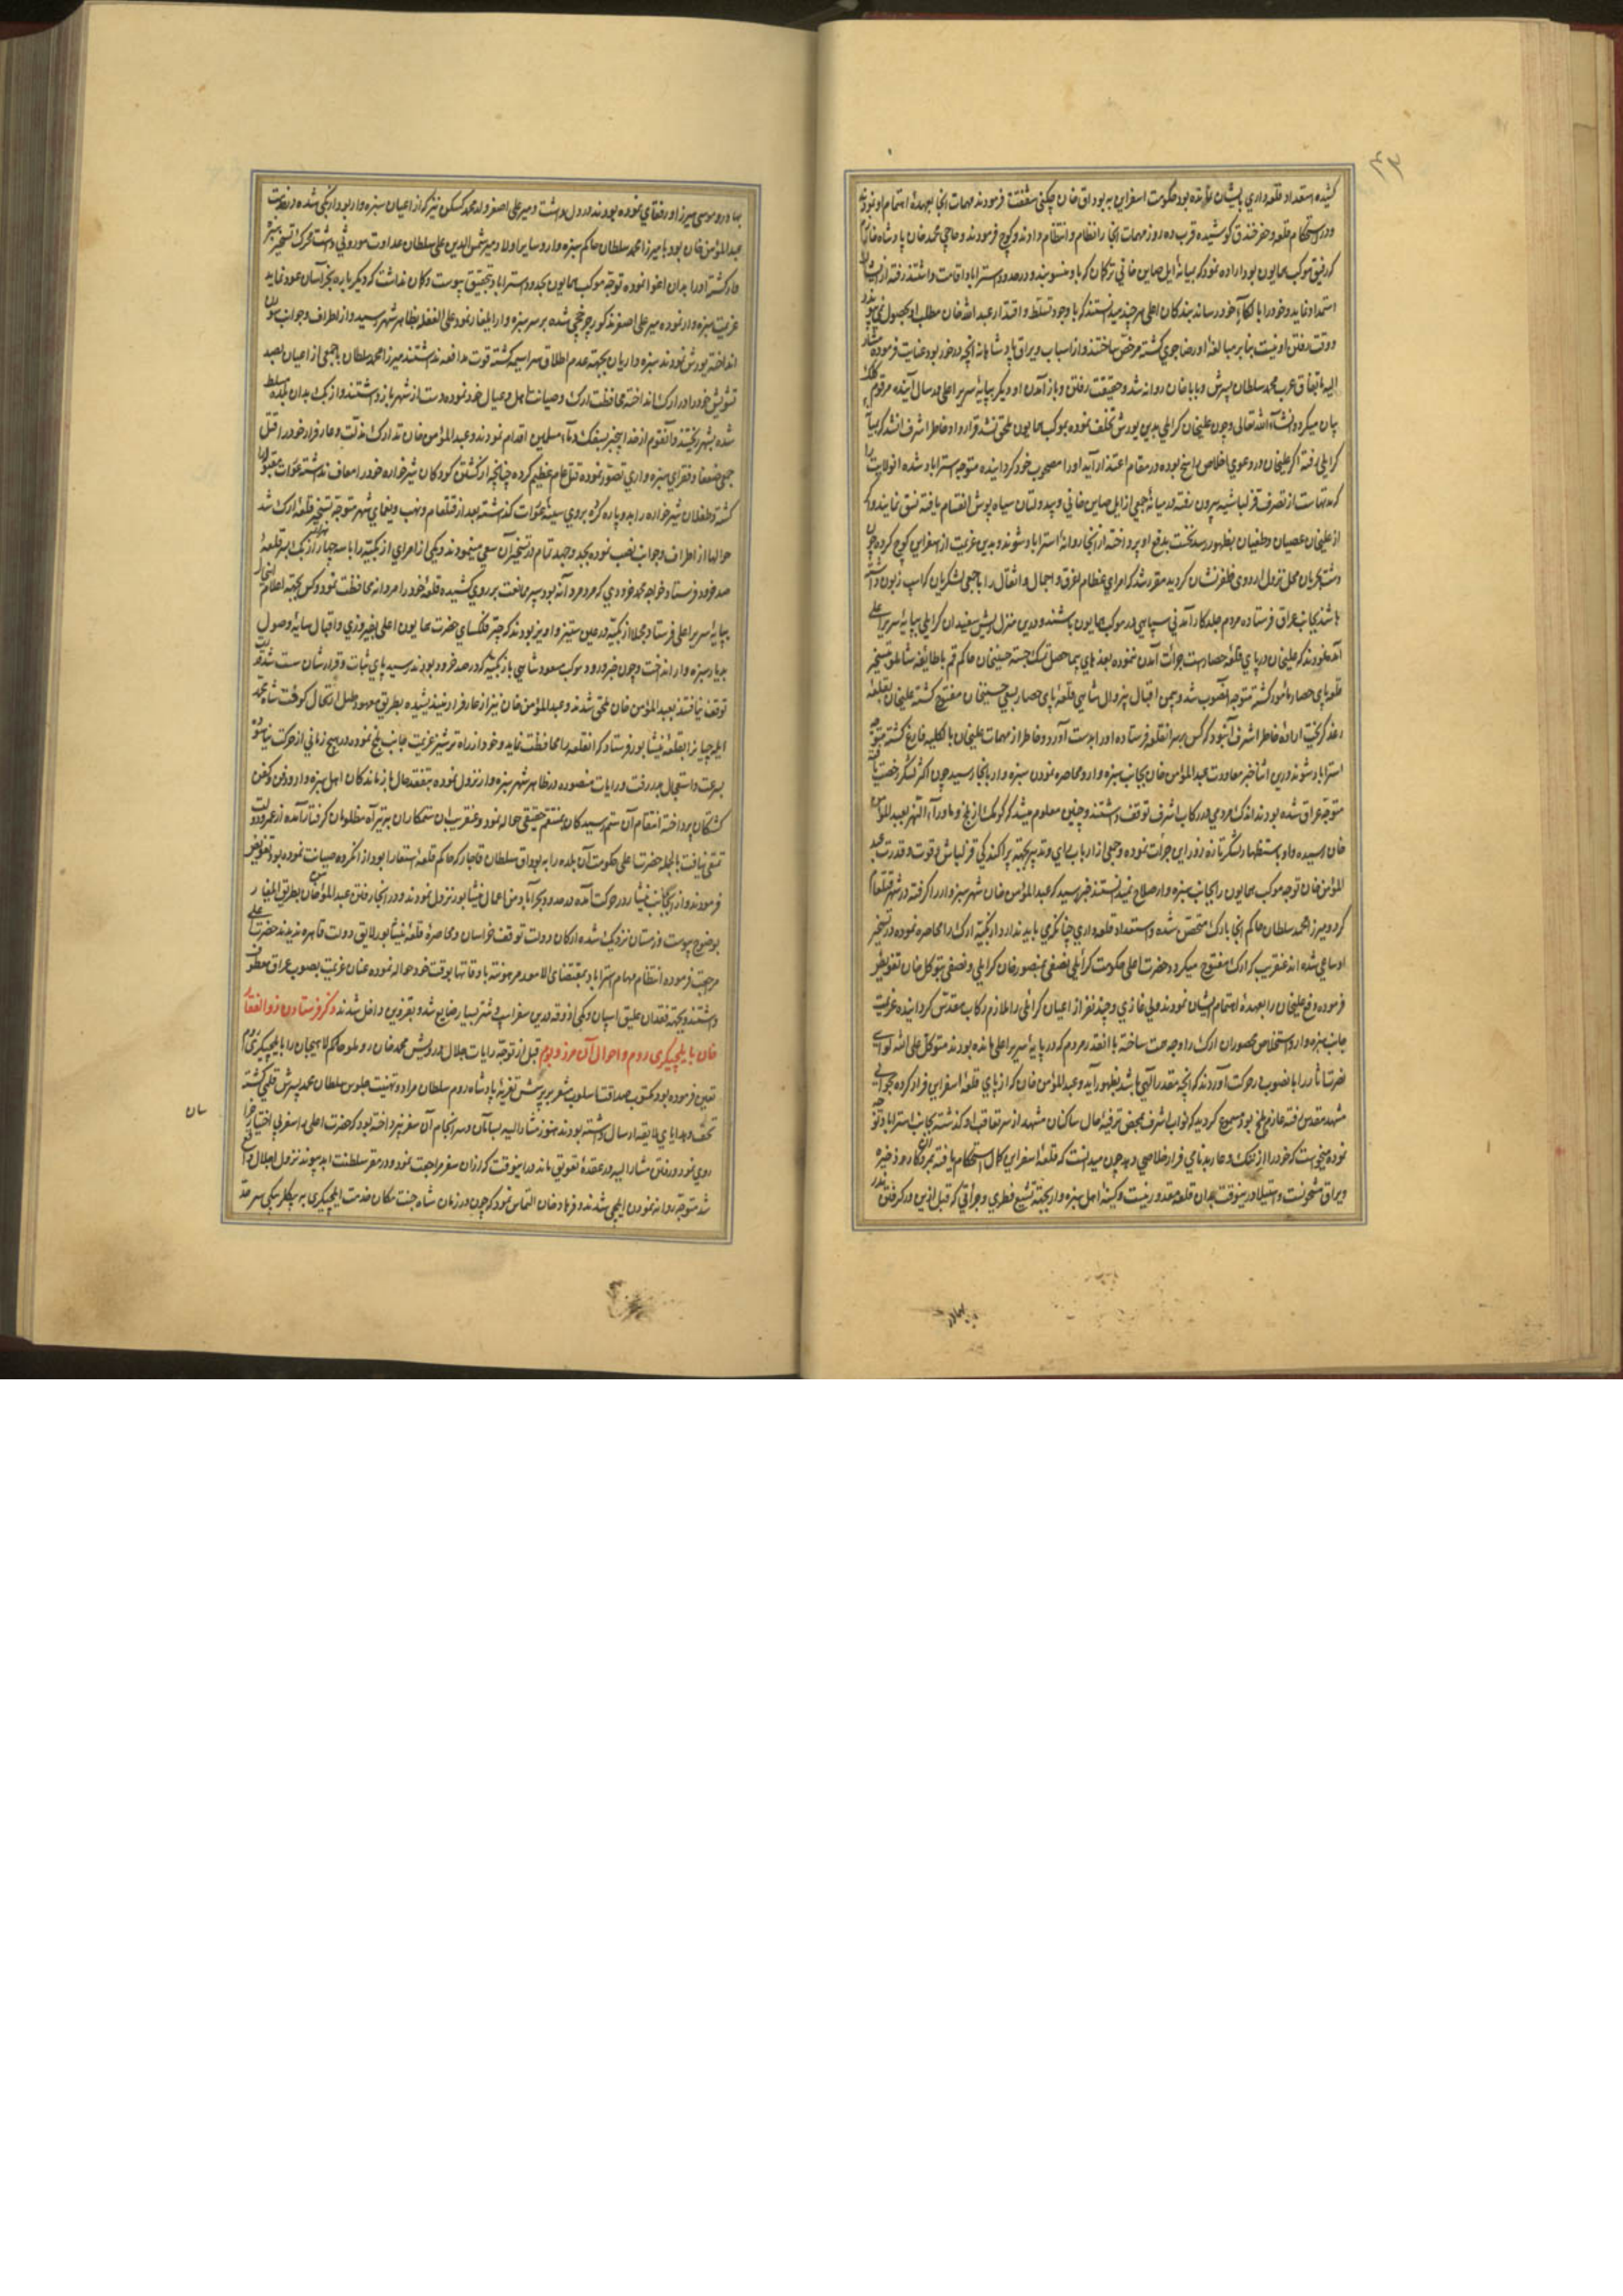 کشیده استعداد قلعه داری
ودر استحکام قلعه و حفر خندق کوشیده قرب ده روز مهمات آنجا را نظام و انتظام دادند و کوچ فرمودند و حاجی محمد خان پادشاه
که رفیق موکب همایون بود اراده نمود که بمیانهٔ ایل صاین خانی ترکمان که باو منسوبند و در حدود استراباد اقامت داشتند رفته از
استمداد نماید و خود را بالکاء خود رساند بندگان اعلی هر چند میدانستند که با وجود تسلط و اقتدار عبد الله خان مطلب او بحصول نمی
ووقت رفتن او نیست بنابر مبالغهٔ او رضاجوی گشته مرخص ساختند و از اسباب و یراق پادشاهانه آنچه در خور بود عنایت فرموده
الیه باتفاق عرب محمد سلطان پسرش و بابا خان روانه شد و حقیقت رفتن و باز آمدن او دیگر بپایهٔ سریر اعلی در سال آینده مرقوم
بیان میگردد انشاء الله تعالی و چون علیخان کرایلی بدین یورش تخلف نموده بموکب همایون ملحق نشد قرار داد خاطر اشرف آنشد که
کرایلی رفته اگر علیخان در دعوی اخلاص راسخ بوده در مقام اعتذار آید او را مصحوب خود گردانیده متوجه استراباد شده آنولایت
که مدتهاست از تصرف قزلباشیه بیرون رفته در میانهٔ جمعی از ایل صاین خانی و بیدولتان سیاه پوش انقسام یافته نسق نمایند و
از علیخان عصیان و طغیان بظهور رسد نخست بدفع او پرداخته از آنجا روانهٔ استراباد شوند و بدین عزیمت از اسفراین کوچ کرده
دشت محل نزول اردوی ظفر نشان گردید مقرر شد که امرای عظام اغرق و احمال و اثقال را با جمعی لشکریان که اسب زبون
باشند بجانب عراق فرستاده مردم جلد کارآمدنی سپاهی در موکب همایون باشند و درین منزل ریش سفیدان کرایلی بپایهٔ سریر اعلی
آمده نمودند که علیخان در پای قلعهٔ حصار است جرأت آمدن ننموده بعذرهای بیحاصل تمسک جسته حسینخان حاکم قم با طایفهٔ شاملو بتسخیر
قلعه پای حصار مأمور گشته متوجه آنصوب شد و بیمن اقبال بیزوال شاهی قلعهٔ پای حصار بسعی حسینخان مفتوح گشته علیخان بقلعهٔ
رعد گریخت ارادهٔ خاطر اشرف آن بود که کس بر سر آنقلعه فرستاده او را بدست آورد و خاطر از مهمات علیخان بالکلیه فارغ گشته متوجه
استراباد شوند درین اثنا خبر معاودت عبد المؤمن خان بجانب سبزه وار و محاصره نمودن سبزه وار بآنجا رسید چون اکثر لشکر
متوجه عراق شده بودند اندک مردمی در رکاب اشرف توقف داشتند و چنین معلوم میشد که کومک از بلخ و ماوراء النهر بعبد
خان رسیده و او باستظهار لشکر تازه زور این جرأت نموده و جمعی از ارباب رای و تدبیر بجهته پراکندگی قزلباش و قوت و قدرت عبد
المؤمن خان توجه موکب همایون را بجانب سبزه وار صلاح نمیدانستند خبر رسید که عبد المؤمن خان شهر سبزوار را گرفته در شهر قتلعام
کرد و میرزا محمد سلطان حاکم آنجا بارک متحصن شده و استعداد قلعه داری چنانکه باید ندارد و ازبکیه ارک را محاصره نموده در تسخیر
او ساعی شده اند عنقریب که ارک مفتوح میگردد حضرت اعلی حکومت کرایلی نصفی بمنصور خان کرایلی و نصفی بتوکل خان تفویض
فرموده دفع علیخان را بعهدهٔ اهتمام ایشان نمودند و ولی خازی و چند نفر از اعیان کرایلی را ملازم رکاب مقدس گردانیده عزیمت
جانب سبزه وار و استخلاص محصوران ارک را وجه همت ساخته با آنقدر مردم که در پایهٔ سریر اعلی مانده بودند متوکل علی الله لوای
نصرت انما را بآنصوب در حرکت آوردند که آنچه مقدر الهی باشد بظهور آید و عبد المؤمن خان که از پای قلعهٔ اسفراین فرار کرده
مشهد مقدس رفته عازم بلخ بود مسموع گردید که نواب اشرف بمحض ترفیهٔ حال ساکنان مشهد از سر تعاقب او گذشته بجانب استراباد
نموده میخواست که خود را از ننگ و عار بدنامی فرار خلاصی دهد چون میدانست که قلعهٔ اسفراین کمال استحکام یافته بمردان کار و ذخیره
ویراق مشحونست و استیلا در ینوقت بدان قلعه مقدور نیست و کینهٔ اهل سبزه وار بجهته تشیع فطری و جرأتی که قبل ازین در گرفتن
بهادر و موسی میرزا و رفقای نموده بودند در دل داشت و میر علی اصغر ولد محمد نیز که از اعیان سبزه وار بود
عبد المؤمن خان بود با میرزا محمد سلطان حاکم سبزه وار و سایر اولاد میر شمس الدین علی سلطان عداوت موروثی داشت محرک تسخیر
گشته او را بدان اغوا نموده توجه موکب همایون بحدود استراباد بتحقیق پیوست و گمان نداشت که دیگر باره بخراسان عود نماید
عزیمت سبزه وار نموده میر علی اصغر مذکور چرخچی شده بر سر سبزه وار ایلغار نمود علی الغفله بظاهر شهر رسید و از اطراف و جوانب
انداخته یورش نمودند سبزه واریان بجهته عدم اطلاق سراسیمه گشته قوت مدافعه نداشتند میرزا محمد سلطان با جمعی از اعیان بصد
تشویش خود را در ارک انداخته محافظت ارک و صیانت اهل و عیال خود نموده دست از شهر باز داشتند و ازبک بدان بلده مسلط
شده بشهر ریختند و آنقوم از خدا بیخبر بسفک دماء مسلمین اقدام نمودند و عبد المؤمن خان تدارک مذلت و عار فرار خود را در قتل
جمعی ضعفا و فقرای سبزه واری تصور نموده قتل عام عظیم کرده چنانچه از کشتن کودکان شیرخواره خود را معاف نداشته عورات
کشته و طفلان شیرخواره را بدو پاره کرده بروی سینهٔ عورات گذاشته بعد از قتلعام و نهب و یغمای شهر متوجه تسخیر قلعهٔ ارک شد
حوالها از اطراف و جوانب نصب نموده بجد و جهد تمام در تسخیر آن سعی مینمودند و یکی از امرای ازبکیه را با سه چهار هزار ازبک بسر قلعهٔ
صد خرو فرستاد خواجه محمد خرودی که مرد مردانه بود سپر ممانعت بر روی کشیده قلعهٔ خود را مردانه محافظت نمود و کس بجهته اعلام
بپایهٔ سریر اعلی فرستاد مجملا ازبکیه در عین ستیز و آویز بودند که چتر فلکسای حضرت همایون اعلی بفیروزی و اقبال سایهٔ وصول
بدیار سبزه وار انداخت و چون خبر ورود موکب مسعود شاهی بازبکیه که در صد خرو بودند رسید پای ثبات و قرارشان سست شده
توقف نیافتند بعبد المؤمن خان ملحق شدند و عبد المؤمن خان نیز از عار فرار نیندیشیده بطریق معهود طبل ارتحال کوفت شاه محمد
را بقلعهٔ نیشابور فرستاد که آنقلعه را محافظت نماید و خود از راه ترشیز عزیمت جانب بلخ نموده در هیچ زمانی از حرکت نیاسود
بسرعت و استعجال بدر رفت و رایات منصوره در ظاهر شهر سبزه وار نزول نموده بتفقد حال بازماندگان اهل سبزه وار و دفن و کفن
کشتگان پرداخته انتقام آن ستم رسیدگان بمنتقم حقیقی حواله نمود و عنقریب آن ستمکاران بتیر آه مظلومان گرفتار آمده از عمر و دولت
تمتعی نیافت بالجمله حضرت اعلی حکومت آن بلده را به بوداق سلطان قاجار که حاکم قلعهٔ بود و از آنگروه صیانت نموده بود تفویض
فرمودند و از آنجا بجانب نیشابور در حرکت آمده در حدود بحرآباد من اعمال نیشابور نزول نمودند و در آنجا رفتن عبد المؤمن خان بطریق ایلغار
بوضوح پیوست و زمستان نزدیک شده ارکان دولت توقف خراسان و محاصرهٔ قلعهٔ نیشابور لایق دولت قاهره ندیدند حضرت اعلی
مراجعت فرموده انتظام مهام استراباد بمقتضای الامور مرهونة باوقاتها بوقت خود حواله نموده عنان عزیمت بصوب عراق معطوف
داشتند و بجهته فقدان علیق اسپان و کمی آذوقه درین سفر اسب و شتر بسیار ضایع شد و بقزوین داخل شدند ذکر فرستادن ذوالفقار
خان بایلچیگری روم و احوال آن مرز و بوم قبل از توجه رایات جلال درویش محمد خان روملو حاکم لاهیجان را بایلچیگری روم
تعین فرموده بود و مکتوب صداقت اسلوب مشعر بر پرسش تعزیهٔ پادشاه روم سلطان مراد و تهنیت جلوس سلطان محمد پسرش قلمی گشته
تحف و هدایای لایقه ارسال داشته بودند هنوز مشار الیه بسامان و سرانجام آن سفر نپرداخته بود که حضرت اعلی به سفر
روی نمود و رفتن مشار الیه در عقدهٔ تعویق ماند در اینوقت که از آن سفر مراجعت نمود و در مقر سلطنت ابد پیوند نزول اجلال واقع
شد متوجه روانه نمودن ایلچی شدند و فرهاد خان التماس نمود که چون در زمان شاه جنت مکان خدمت ایلچیگری به بیگلربیگی سرحد
سان